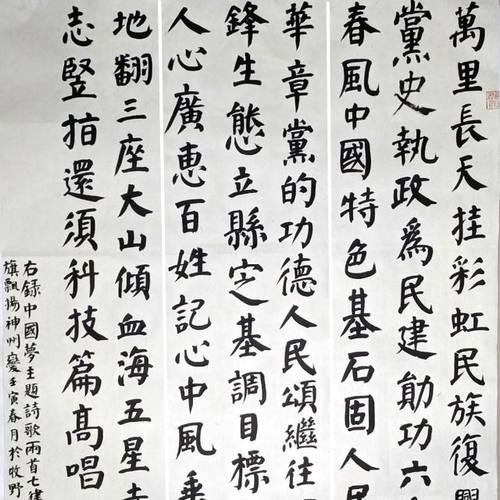 萬里長天挂彩虹民族復興
黨史執政爲民建勛功六
春風中國特色基石固人民
華章黨的功德人民頌繼往
鋒生態立縣定基調目標
人心廣惠百姓記心中風乘
地翻三座大山傾血海五星
志竪拍還須科技篇高唱
右錄中國夢主題詩歌兩首七律
旗飄揚神州慶壬寅春月於牧野